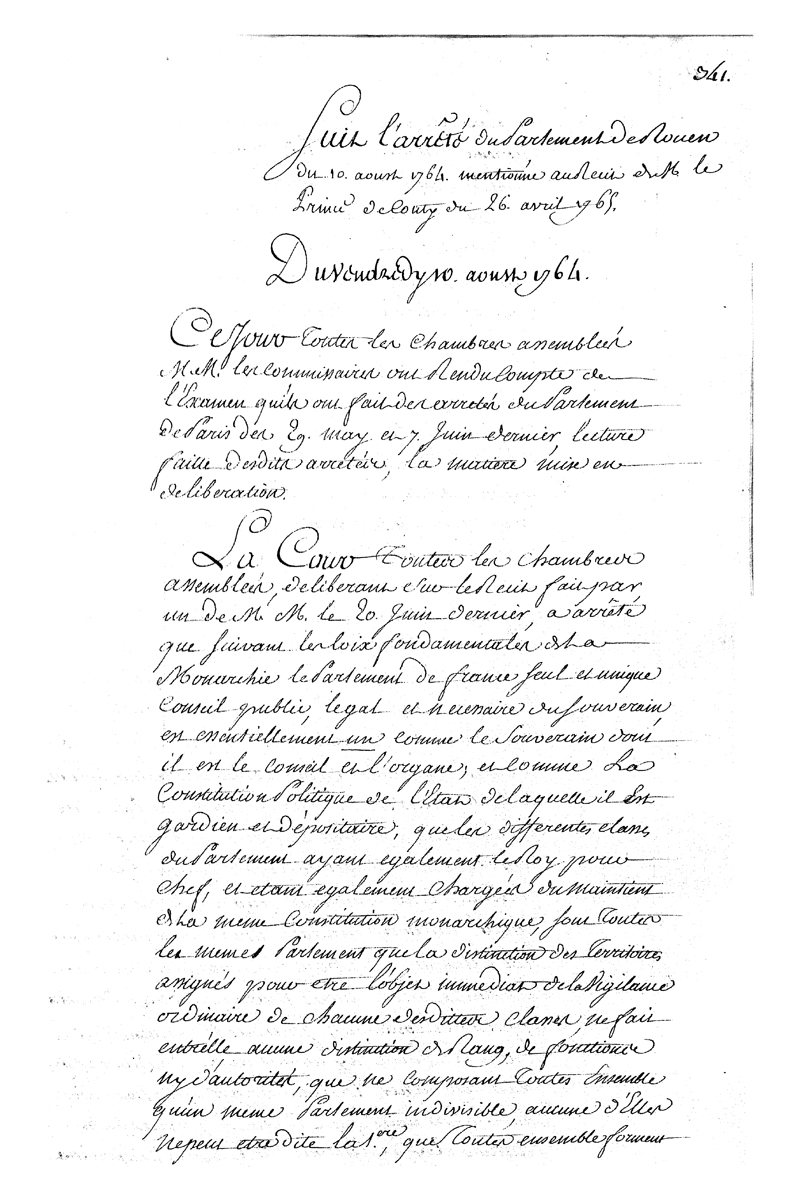 341.
Suit l'arrêté du Parlement de Rouen
du 10. aoust 1764. mentionné au Recit de M. le
Prince de Conty du 26. avril 1765.
Du vendredy 10. aoust 1764.
Ce Jour Toutes les chambres assemblées
M. M. les commissaires ont Rendu Compte de
l'Examen qu'ils ont fait des arretés du Parlement
de Paris des 29. may et 7. Juin dernier, lecture
faitte desdits arretés, la matiere mise en
deliberation.
La Cour Toutes les chambres
assemblées, deliberant sur le Recit fait par
un de M. M. le 20. Juin dernier, a arrêté
que suivant les loix fondamentales de La
Monarchie le Parlement de france seul et unique
Conseil public, legal et necessaire du Souverain,
est essentiellement un comme le Souverain dont
il est le conseil et l'organe; et comme La
Constitution Politique de l'Etat de laquelle il Est
gardien et dépositaire, que les differentes classes
du Parlement ayant egalement le Roy pour
chef, et etant egalement chargées du Maintient
de La meme Constitution monarchique, sont Toutes
les memes Parlement que la distinction des Territoires
assignés pour etre l'objet immediat de la Vigilance
ordinaire de chacune desdittes classes ne fait
entr'elle aucune distinction de Rang, de fonctions
ny d'autorités, que ne composant Toutes Ensemble
qu'un meme Parlement indivisible aucune d'Elles
ne peut etre dite la 1.ere, que Toutes ensemble forment